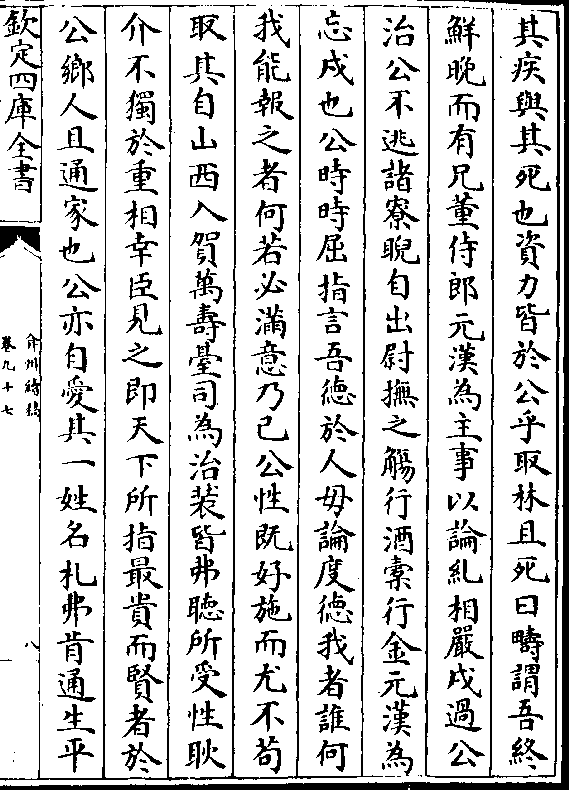 其疾與其死也資力皆於公乎取林且死曰疇謂吾終
鮮晚而有兄董侍郎元漢為主事以論糺相嚴戍過公
治公不逃諸寮睨自出尉撫之觴行酒橐行金元漢為
忘戍也公時時屈指言吾徳於人毋論度徳我者誰何
我能報之者何若必滿意乃已公性既好施而尤不茍
取其自山西入賀萬壽臺司為治装皆弗聴所受性耿
介不獨於重相幸臣見之即天下所指最貴而賢者於
公鄉人且通家也公亦自愛其一姓名札弗肯通生平
欽定四庫全書
弇州續稿
卷九十七
八